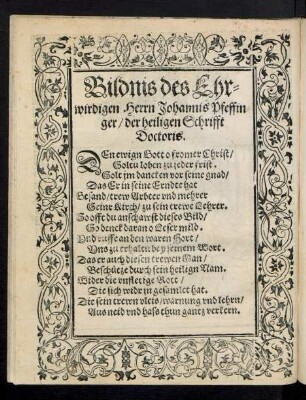 Bildnis des Ehr-
wirdigen Herrn Johannis Pfeffin
ger/ der heiligen Schrifft
Doctoris.
DEn ewign Gott o fromer Christ/
Soltu loben zu jeder frist.
Solt jm dancken vor seine gnad/
Das Er in seine Erndte hat
Gesand/ trew Arbeter vnd mehrer
Seinr Kirch/ zu sein trewe Lehrer.
So offt du anschawst dieses Bild/
So denck daran o Leser mild.
Vnd ruffe an den waren Gott/
Vns zu erhalten bey seinem Wort.
Das er auch diesen trewen Man/
Beschütze durch sein heilign Nam.
Wider die vnfletige Rott/
Die sich widr jn gesamlet hat.
Die sein trewn vleis/ warnung vnd lehrn/
Aus neid vnd hass thun gantz verkern.